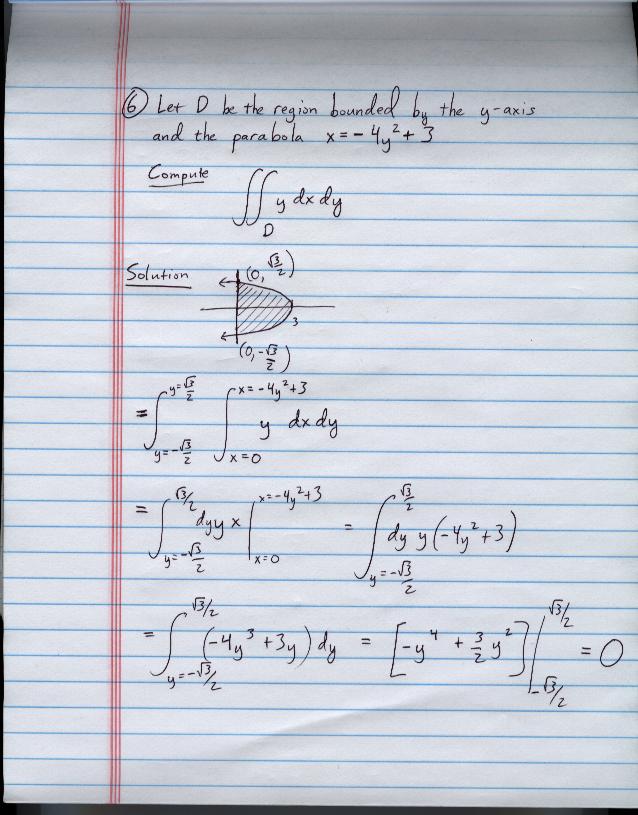 ⑥ Let D be the region bounded by the y-axis
and the parabola x = - 4y² + 3
Compute
∬_D y dx dy
Solution
(0, √3/2)
3
(0, -√3/2)
= ∫_{y=-√3/2}^{y=√3/2} ∫_{x=0}^{x=-4y²+3} y dx dy
= ∫_{y=-√3/2}^{√3/2} dy y x |_{x=0}^{x=-4y²+3} = ∫_{y=-√3/2}^{√3/2} dy y (-4y²+3)
= ∫_{y=-√3/2}^{√3/2} (-4y³ + 3y) dy = [-y⁴ + 3/2 y²] |_{-√3/2}^{√3/2} = 0